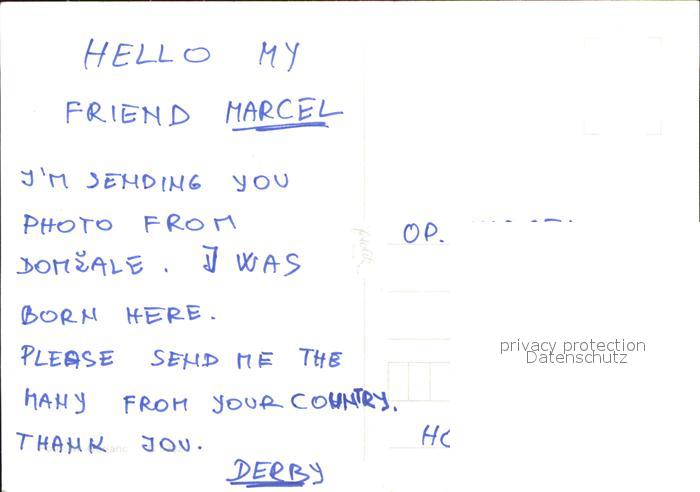 HELLO MY
FRIEND MARCEL
I'M SENDING YOU
PHOTO FROM
DOMŽALE. I WAS
BORN HERE.
PLEASE SEND ME THE
MANY FROM YOUR COUNTRY.
THANK JOU.
DERBY
OP.
HO
privacy protection
Datenschutz